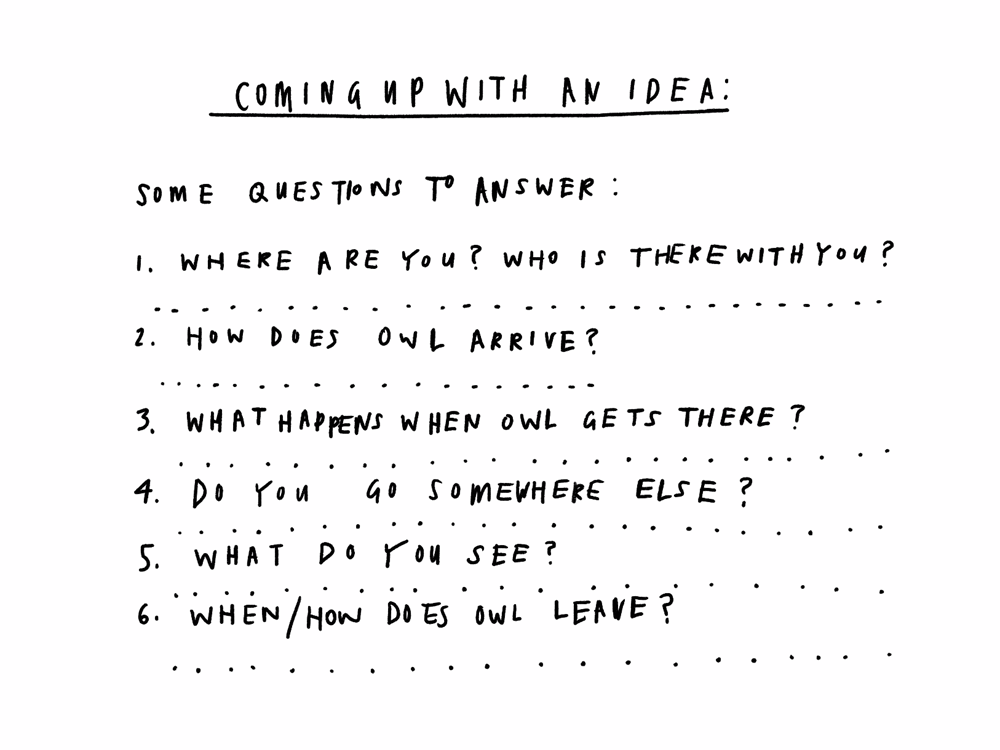 COMING UP WITH AN IDEA:
SOME QUESTIONS TO ANSWER:
1. WHERE ARE YOU? WHO IS THERE WITH YOU?
2. HOW DOES OWL ARRIVE?
3. WHAT HAPPENS WHEN OWL GETS THERE?
4. DO YOU GO SOMEWHERE ELSE?
5. WHAT DO YOU SEE?
6. WHEN/HOW DOES OWL LEAVE?